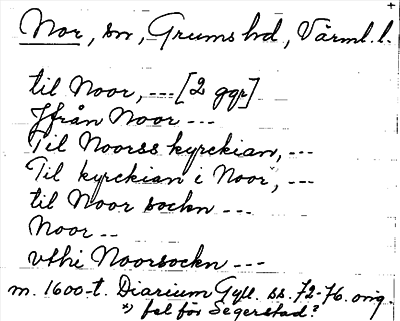 Nor, sn, Grums hd, Värml. l.
til Noor, --- [2 ggr]
Jfrån Noor ---
Til Noorss kyrckian, ---
Til kyrckian i Noor, ---
til Noor sockn ---
Noor --
vthi Noorsockn ---
m. 1600-t. Diarium Gyll. ss. 72-76. orig.
*) fel för Segerstad?